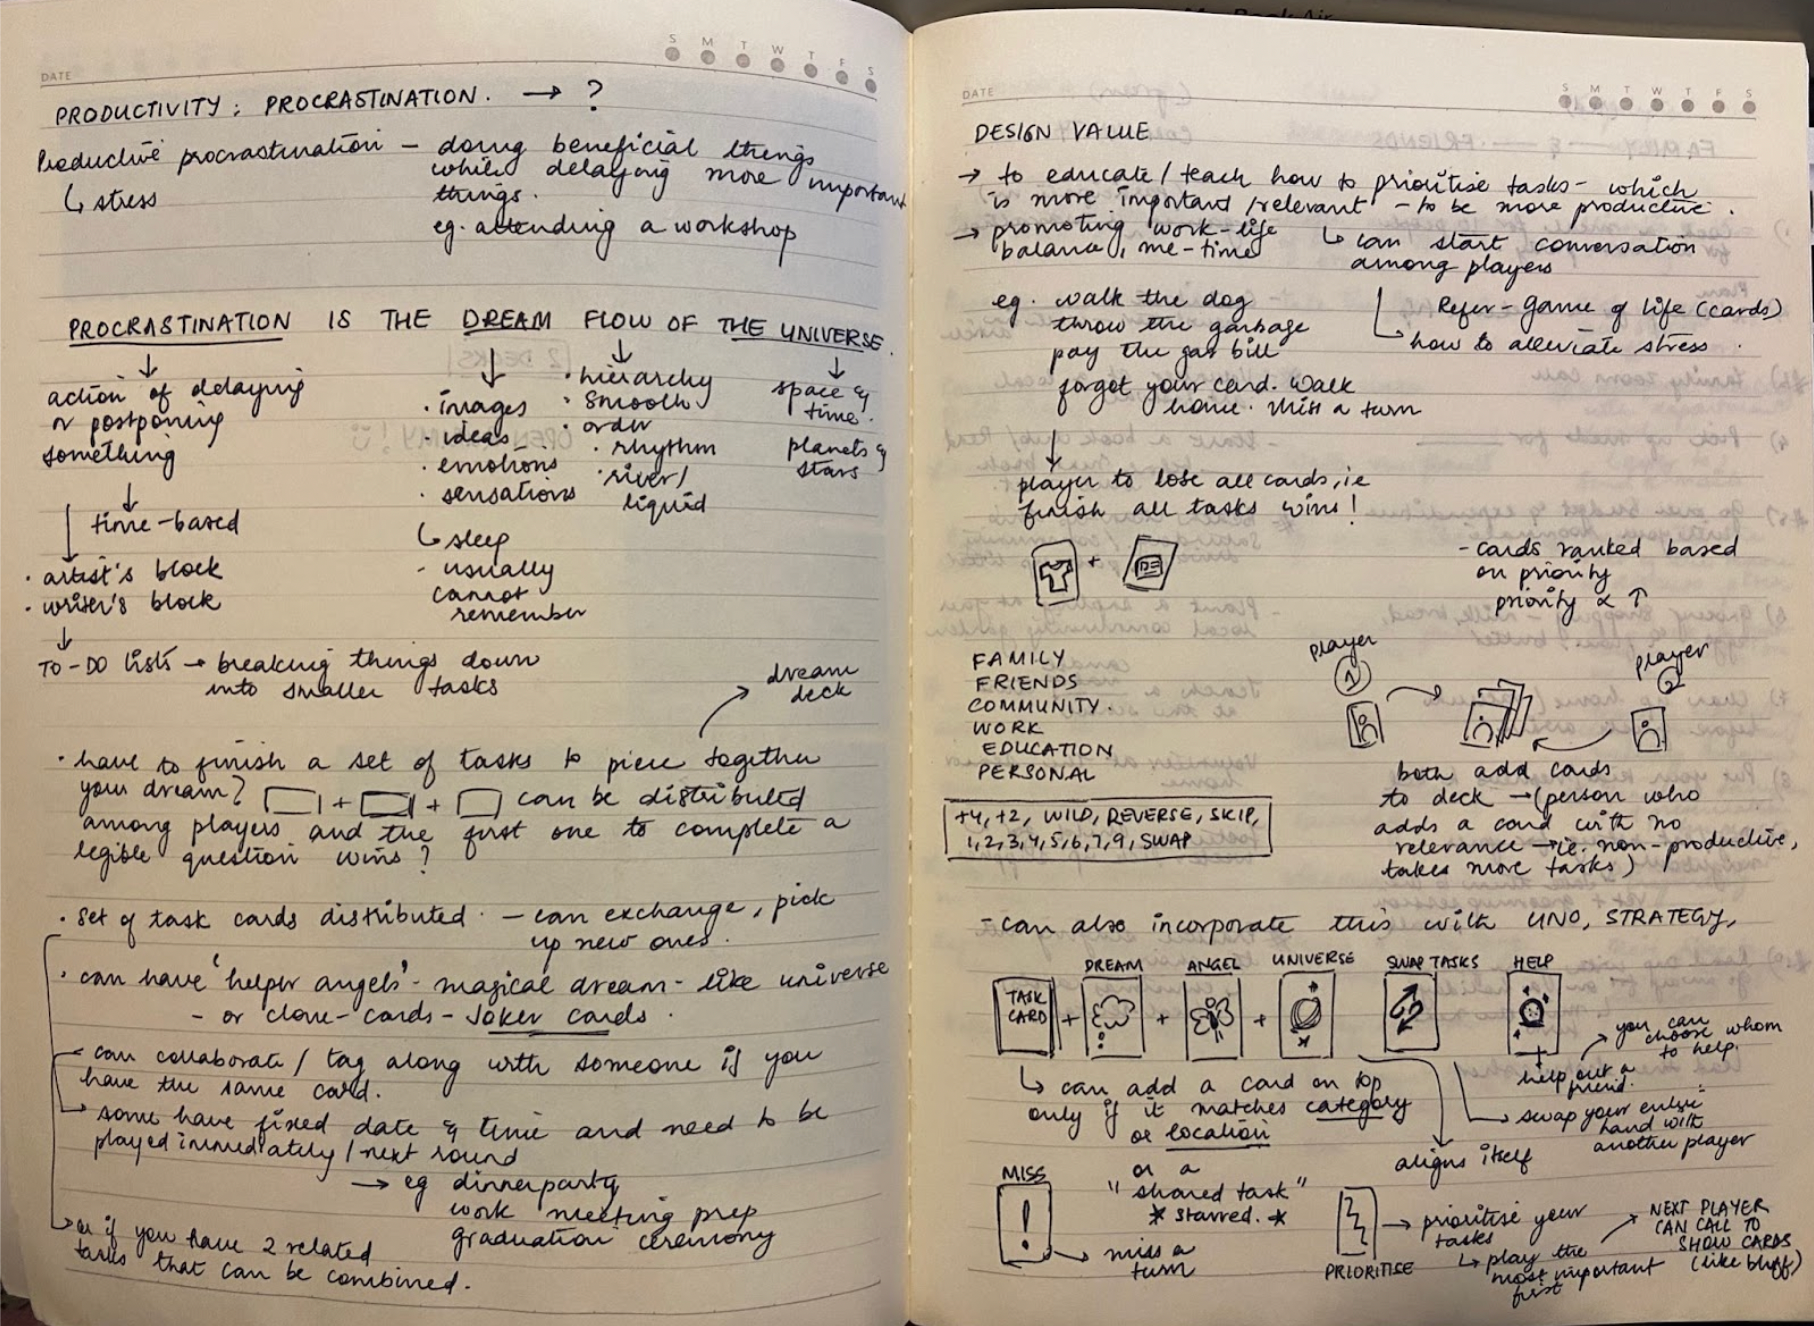 DATE
S M T W T F S
PRODUCTIVITY ; PROCRASTINATION. → ?
Productive procrastination – doing beneficial things
↳ stress
while delaying more important
things.
eg. attending a workshop
PROCRASTINATION IS THE DREAM FLOW OF THE UNIVERSE.
action of delaying
or postponing
something
↓
time-based
· artist's block
· writer's block
· images
· ideas
· emotions
· sensations
↳ sleep
- usually
cannot
remember
· hierarchy
· smooth
· order
· rhythm
· river/
liquid
space &
time.
planets &
stars
TO-DO lists → breaking things down
into smaller tasks
dream
deck
· have to finish a set of tasks to piece together
your dream? + + can be distributed
among players and the first one to complete a
legible question wins?
· Set of task cards distributed. – can exchange, pick
up new ones.
· can have 'helper angels' - magical dream - like universe
- or clone-cards - Joker cards.
can collaborate / tag along with someone if you
have the same card.
some have fixed date & time and need to be
played immediately / next round
→ eg dinner party
work meeting prep
graduation ceremony
or if you have 2 related
tasks that can be combined.
DATE
S M T W T F S
DESIGN VALUE
→ to educate / teach how to prioritise tasks - which
is more important / relevant - to be more productive.
→ promoting work-life
balance, me-time
↳ can start conversation
among players
Refer - Game of life (cards)
how to alleviate stress.
eg. walk the dog
throw the garbage
pay the gas bill
forgot your card. Walk
home. Miss a turn
↓
player to lose all cards, ie
finish all tasks wins!
+
- cards ranked based
on priority
priority ∝ ↑
FAMILY
FRIENDS
COMMUNITY.
WORK
EDUCATION
PERSONAL
+4, +2, WILD, REVERSE, SKIP,
1, 2, 3, 4, 5, 6, 7, 9, SWAP
player
1
player
2
both add cards
to deck → (person who
adds a card with no
relevance → ie. non-productive,
takes more tasks)
- can also incorporate this with UNO, STRATEGY,
DREAM ANGEL UNIVERSE SWAP TASKS HELP
TASK
CARD + + +
↳ can add a card on top
only if it matches category
or location
or a
"shared task"
* starred. *
you can
choose whom
to help.
help out a
friend.
swap your entire
hand with
another player
aligns itself
MISS
!
miss a
turn
PRIORITISE
→ prioritise your
tasks
↳ play the
most important
first
NEXT PLAYER
CAN CALL TO
SHOW CARDS
(like bluff)